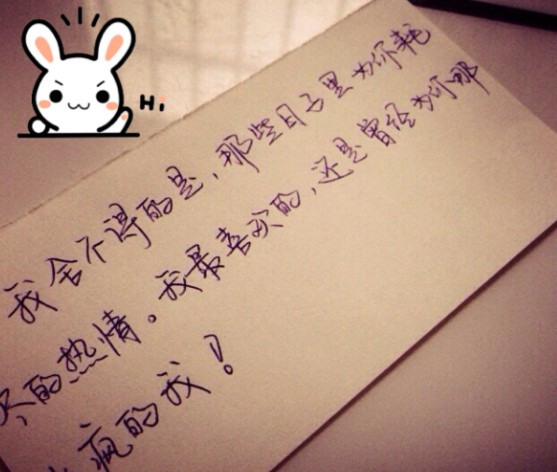 Hi
我舍不得的是，那些日子里为你耗
尽的热情。我最喜欢的，还是曾经为你那
疯的我！